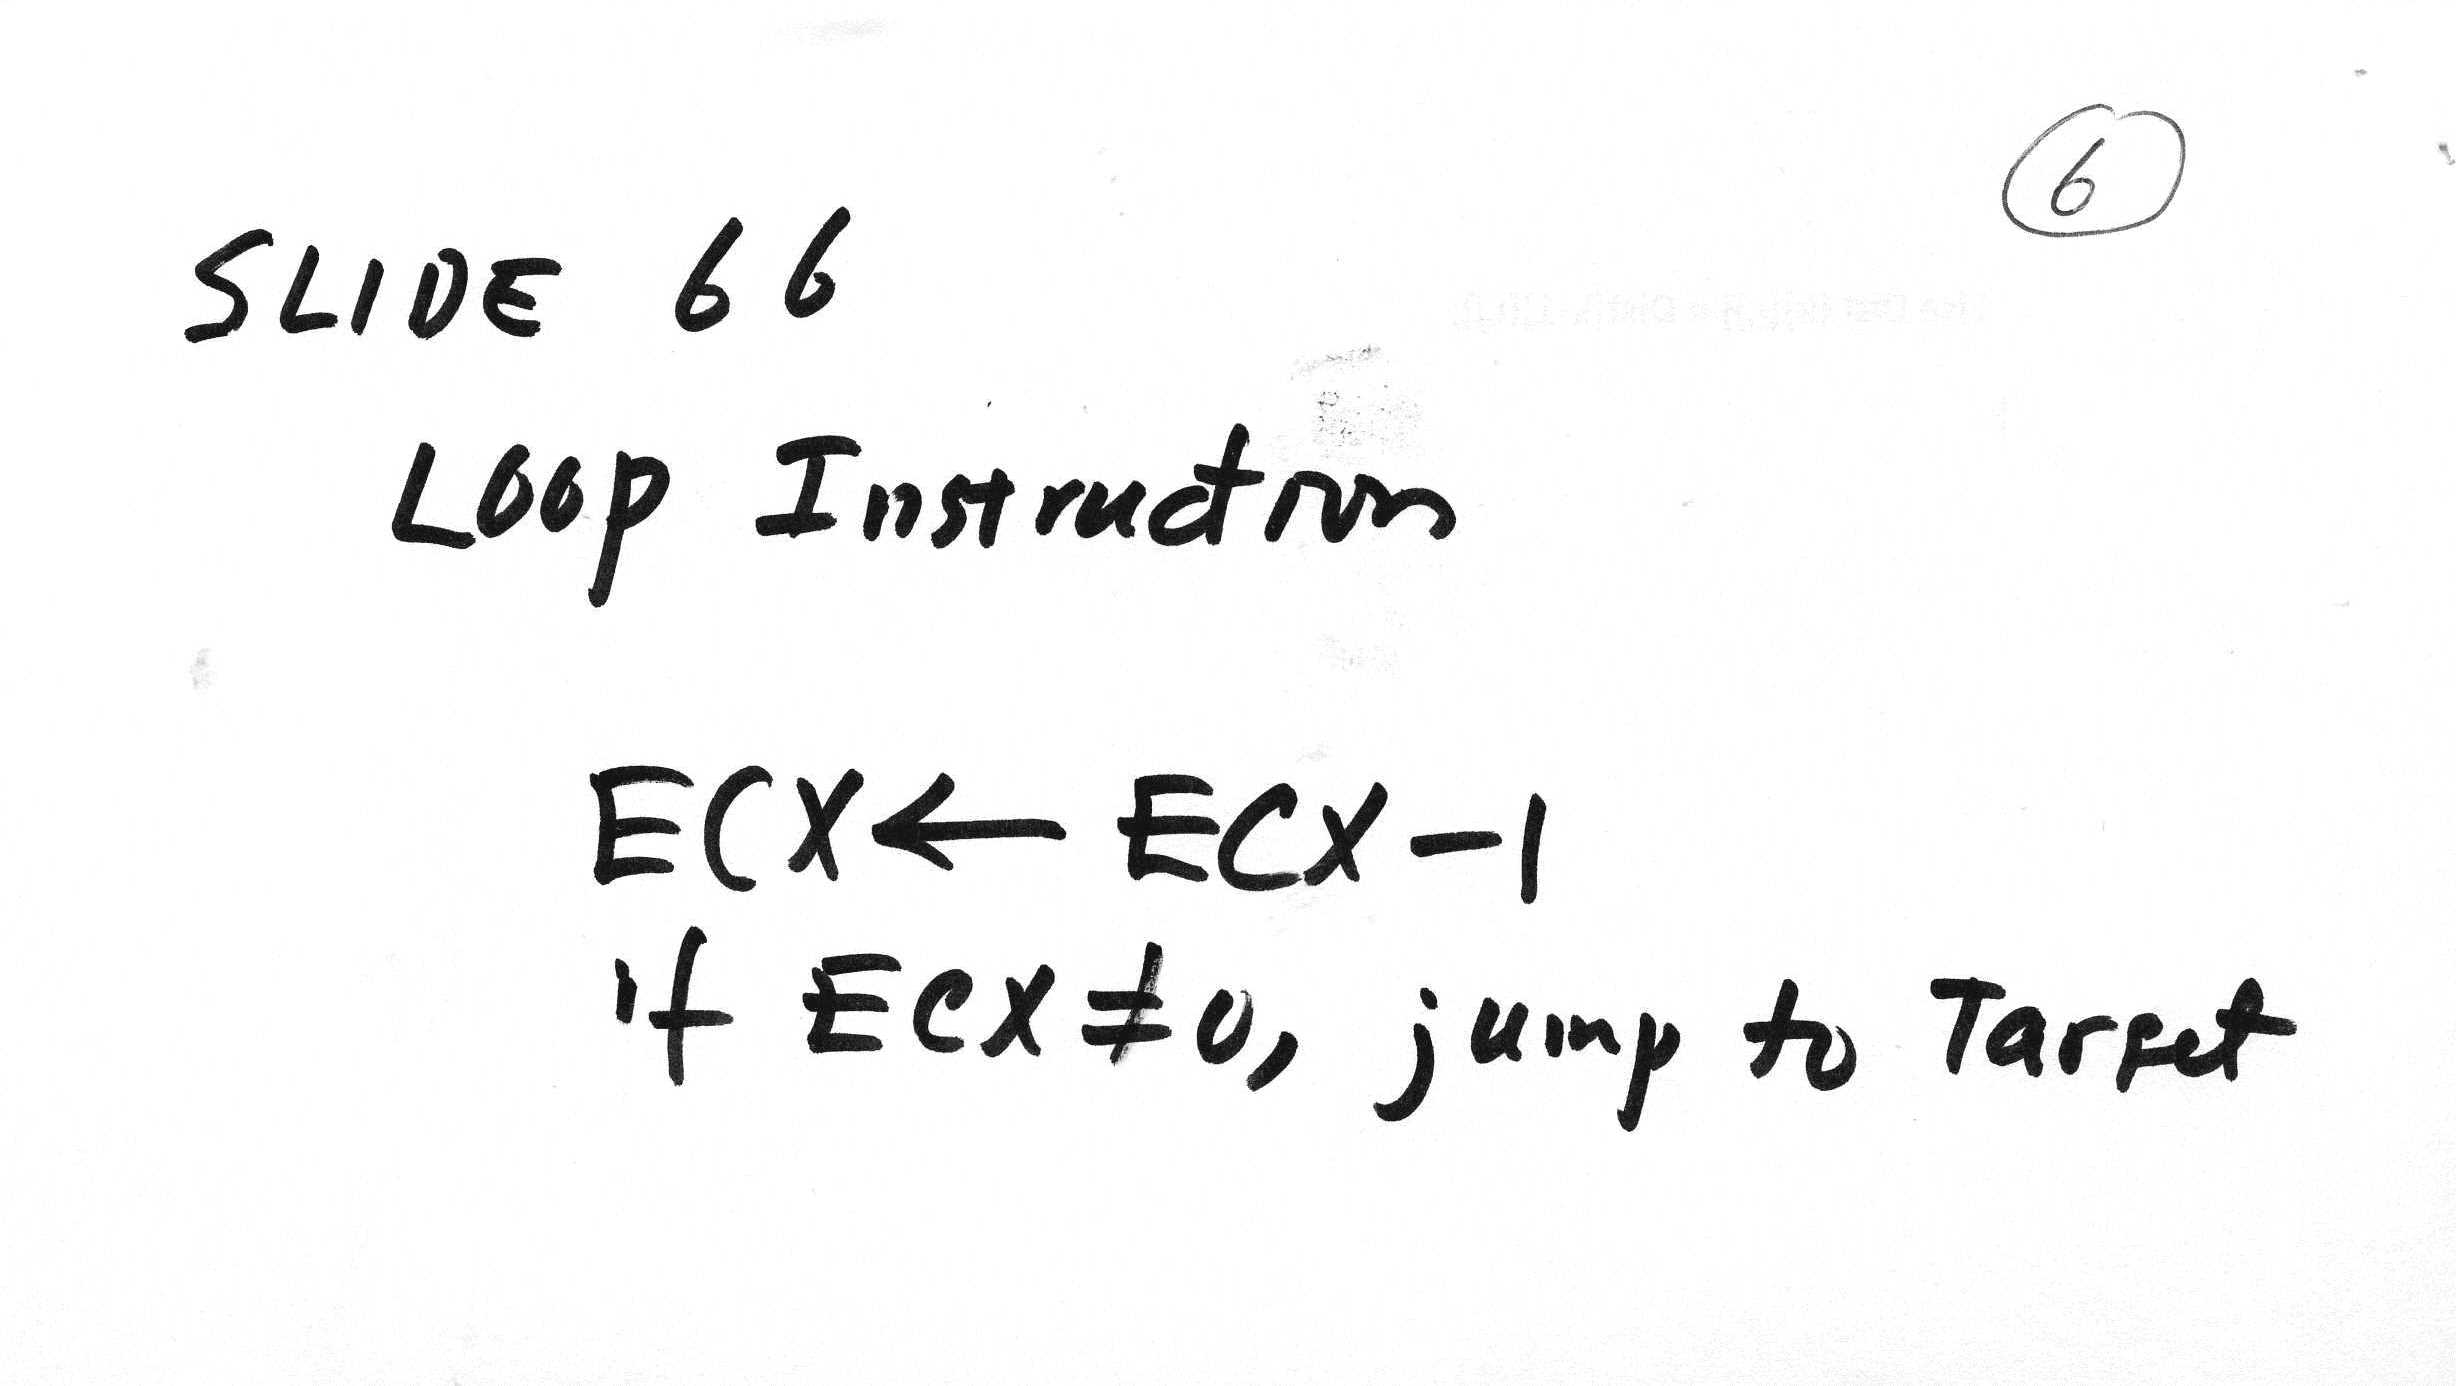 6
SLIDE 66
Loop Instruction
ECX ← ECX - 1
if ECX ≠ 0, jump to Target